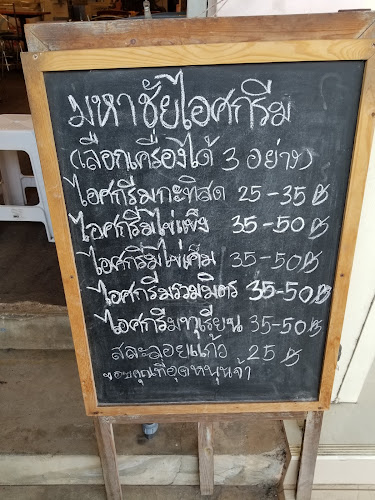 มหาชัยไอศกรีม
(เลือกเครื่องได้ 3 อย่าง)
ไอศกรีมกะทิสด 25-35 ฿
ไอศกรีมไข่แข็ง 35-50 ฿
ไอศกรีมไข่เค็ม 35-50 ฿
ไอศกรีมรวมมิตร 35-50 ฿
ไอศกรีมทุเรียน 35-50 ฿
สละลอยแก้ว 25 ฿
ขอบคุณที่อุดหนุนจ้า